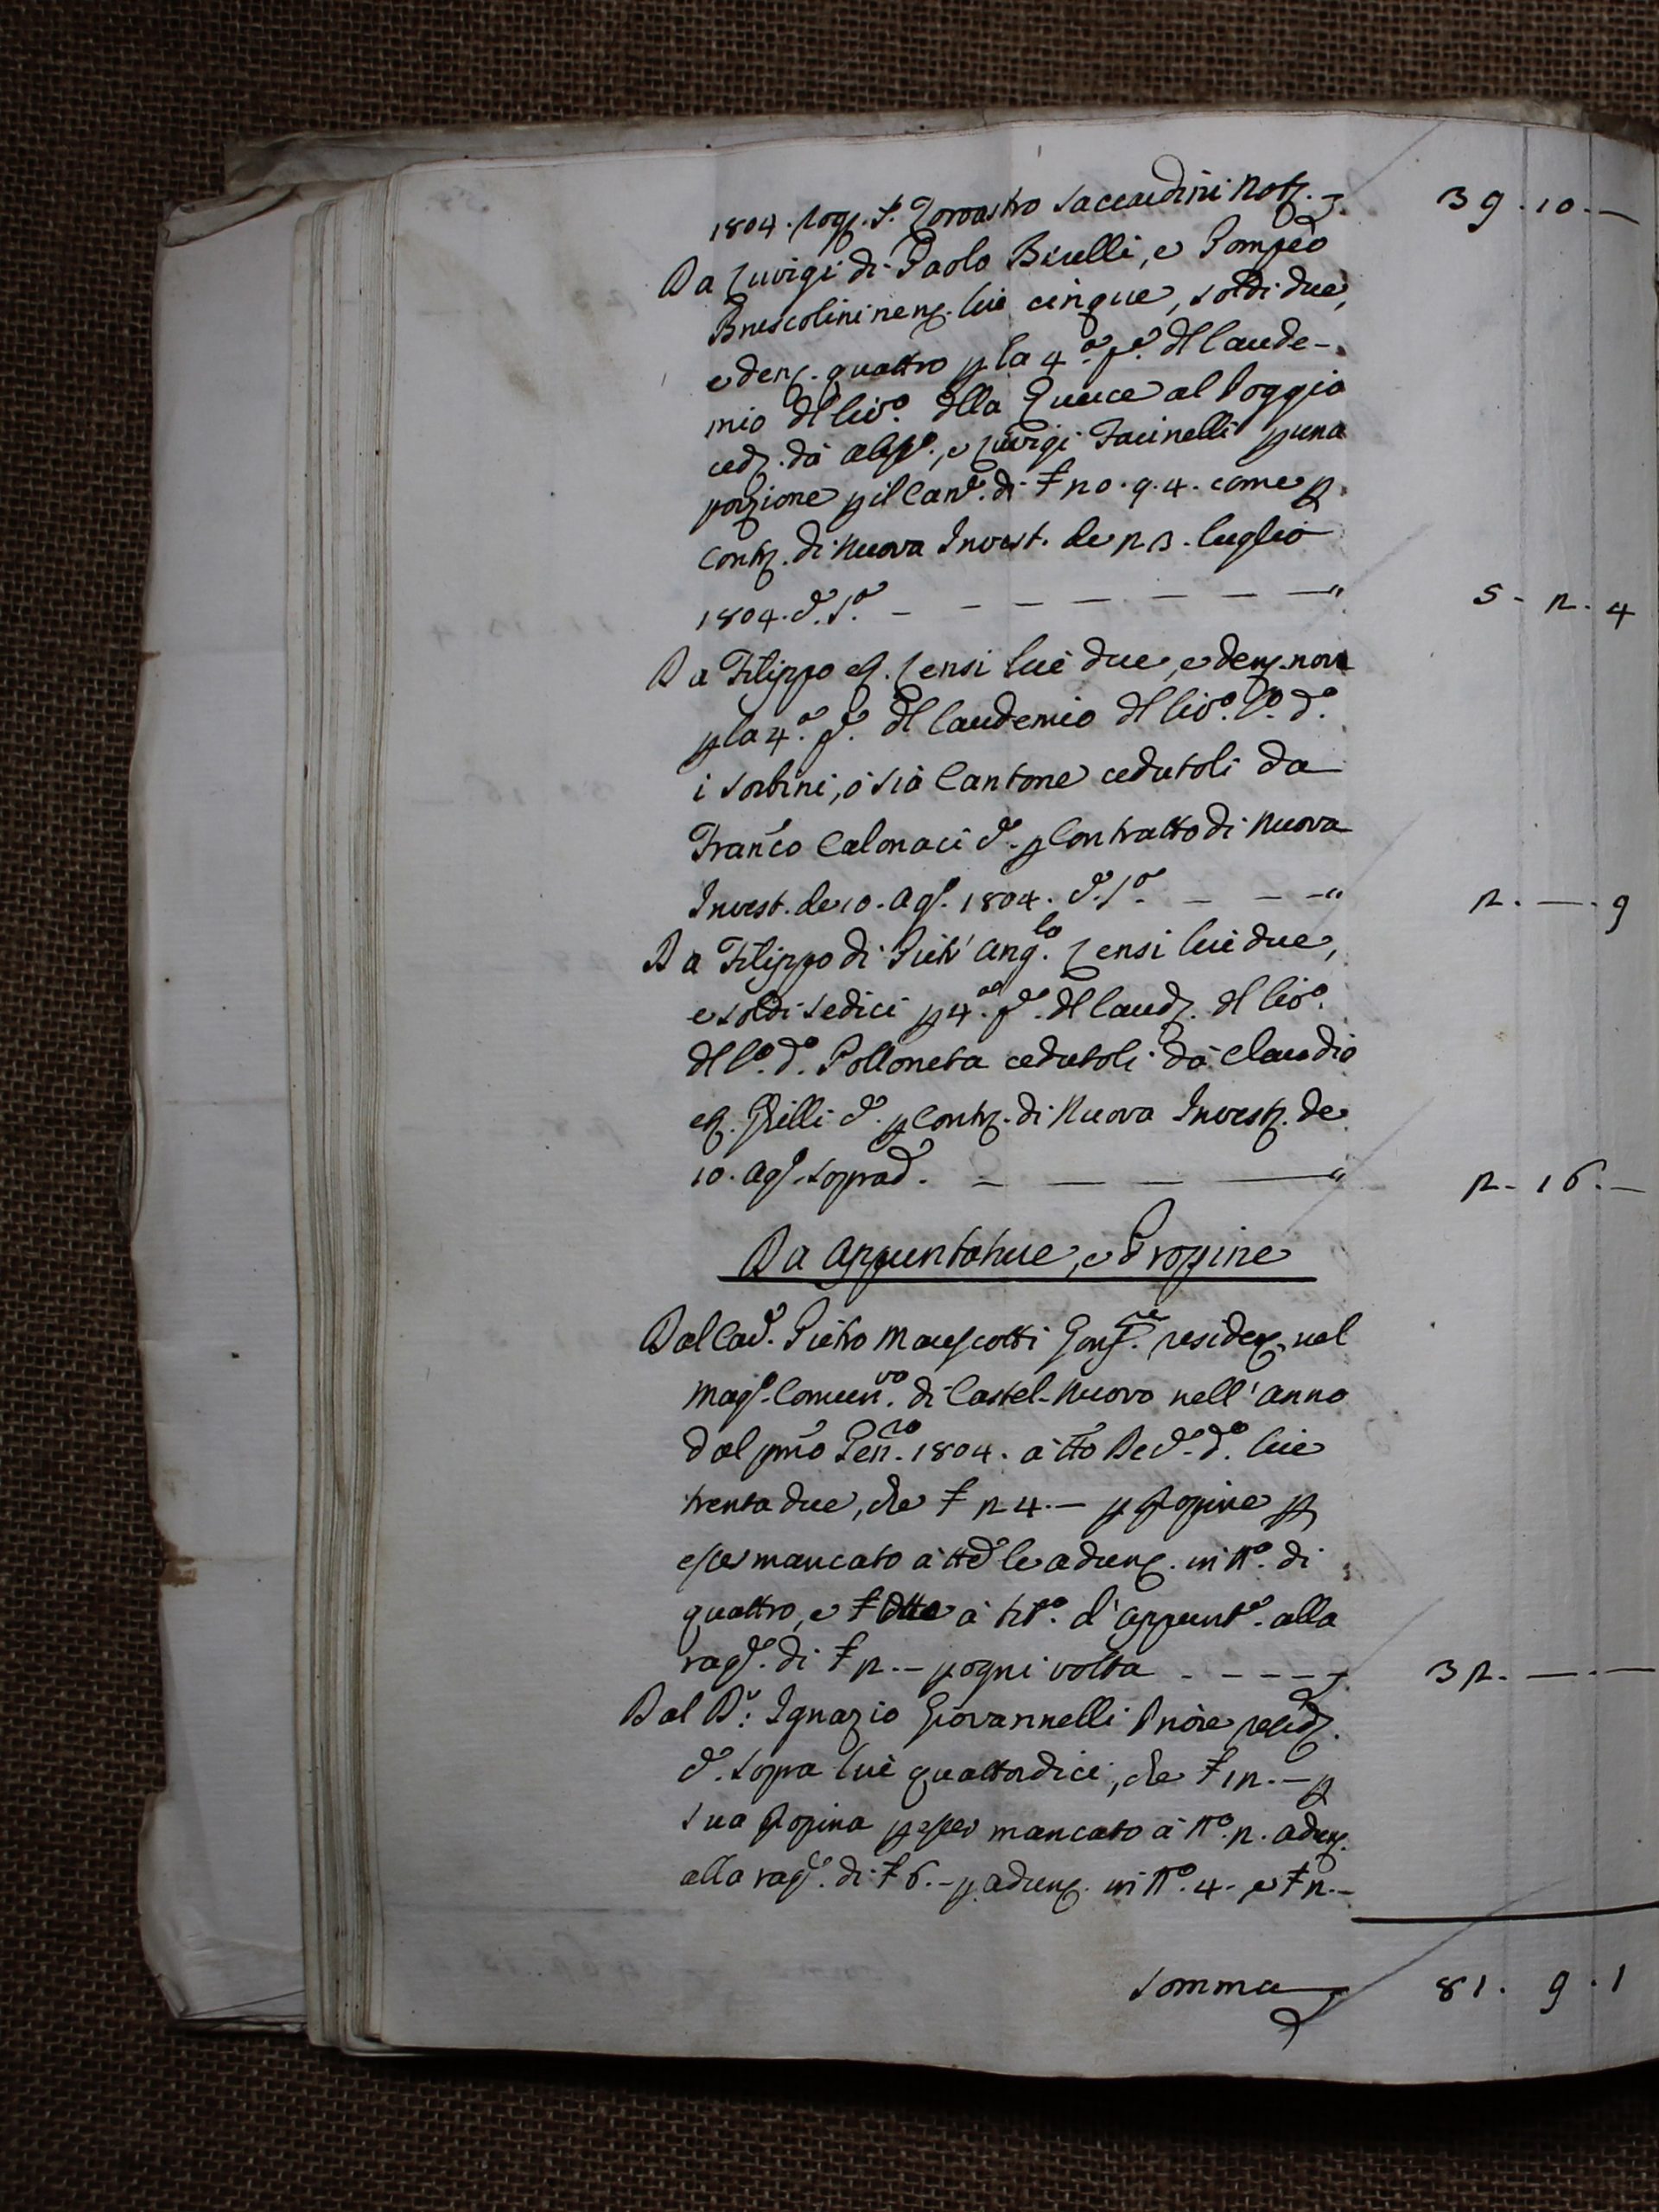 1804. Rog. S. Zoroastro Saccardini Not. 39.10.—
Da Luvigi di Paolo Birelli, e Pompeo
Bruscolini lire cinque, soldi due,
e den. quattro p la 4.a p.e dl laude-
mio dl liv.o dlla Querce al Poggio
ced. da e Luvigi Facinelli p una
porzione p il Can.e di £ 20.9.4. come p
Contr. di nuova Invest. de 23. luglio
1804. d.S.a — — — — — — —" 5-2.4
Da Filippo eq. Censi lire due, e den. nove
p la 4.a p.e dl laudemio dl liv.o l.o d.o
i Sorbini, ò sia Cantone cedutoli da
Fran.co Calonaci d. p Contratto di nuova
Invest. de 10. Ag.o 1804. d.S.a — — —" 2.—.9
Da Filippo di Piet' Ang.lo Censi lire due,
e soldi sedici p 4.a p.e dl laud. dl liv.o
dl l.o d.o Polloneta cedutoli da Claudio
eq. Grilli d. p Contr. di nuova Invest. de
10. Ag.o soprad. — — — —" 2-16.—
Da Appuntature, e Propine
Dal Cav. Pietro Marescotti Gonf.re resideg. nel
Mag.o Comun.vo di Castel-Nuovo nell'anno
dal pmo Genn.ro 1804. à tto De d. d.o lire
trenta due, che £ 24.— p Propine p
esser mancato à tte le adunz. in N.o di
quattro, e £ otto à tit.o d'appunt.e alla
rag.e di £ 2.— p ogni volta — — — — 32.—.—
Dal D.r Ignazio Giovannelli Priore resid.
d. sopra lire quattordici, che £ 12.— p
sua Propina p esser mancato à N.o 2. adunz.
alla rag.e di £ 6.— p adunz. in N.o 4. e £ 2.—
Somma 81. 9.1